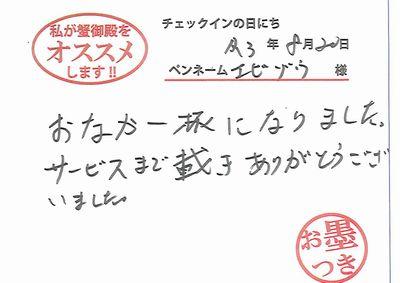 私が蟹御殿を
オススメ
します!!
チェックインの日にち
R3年8月20日
ペンネーム エビゾウ 様
おなか一杯になりました。
サービスまで載きありがとうござ
いました。
お墨
つき